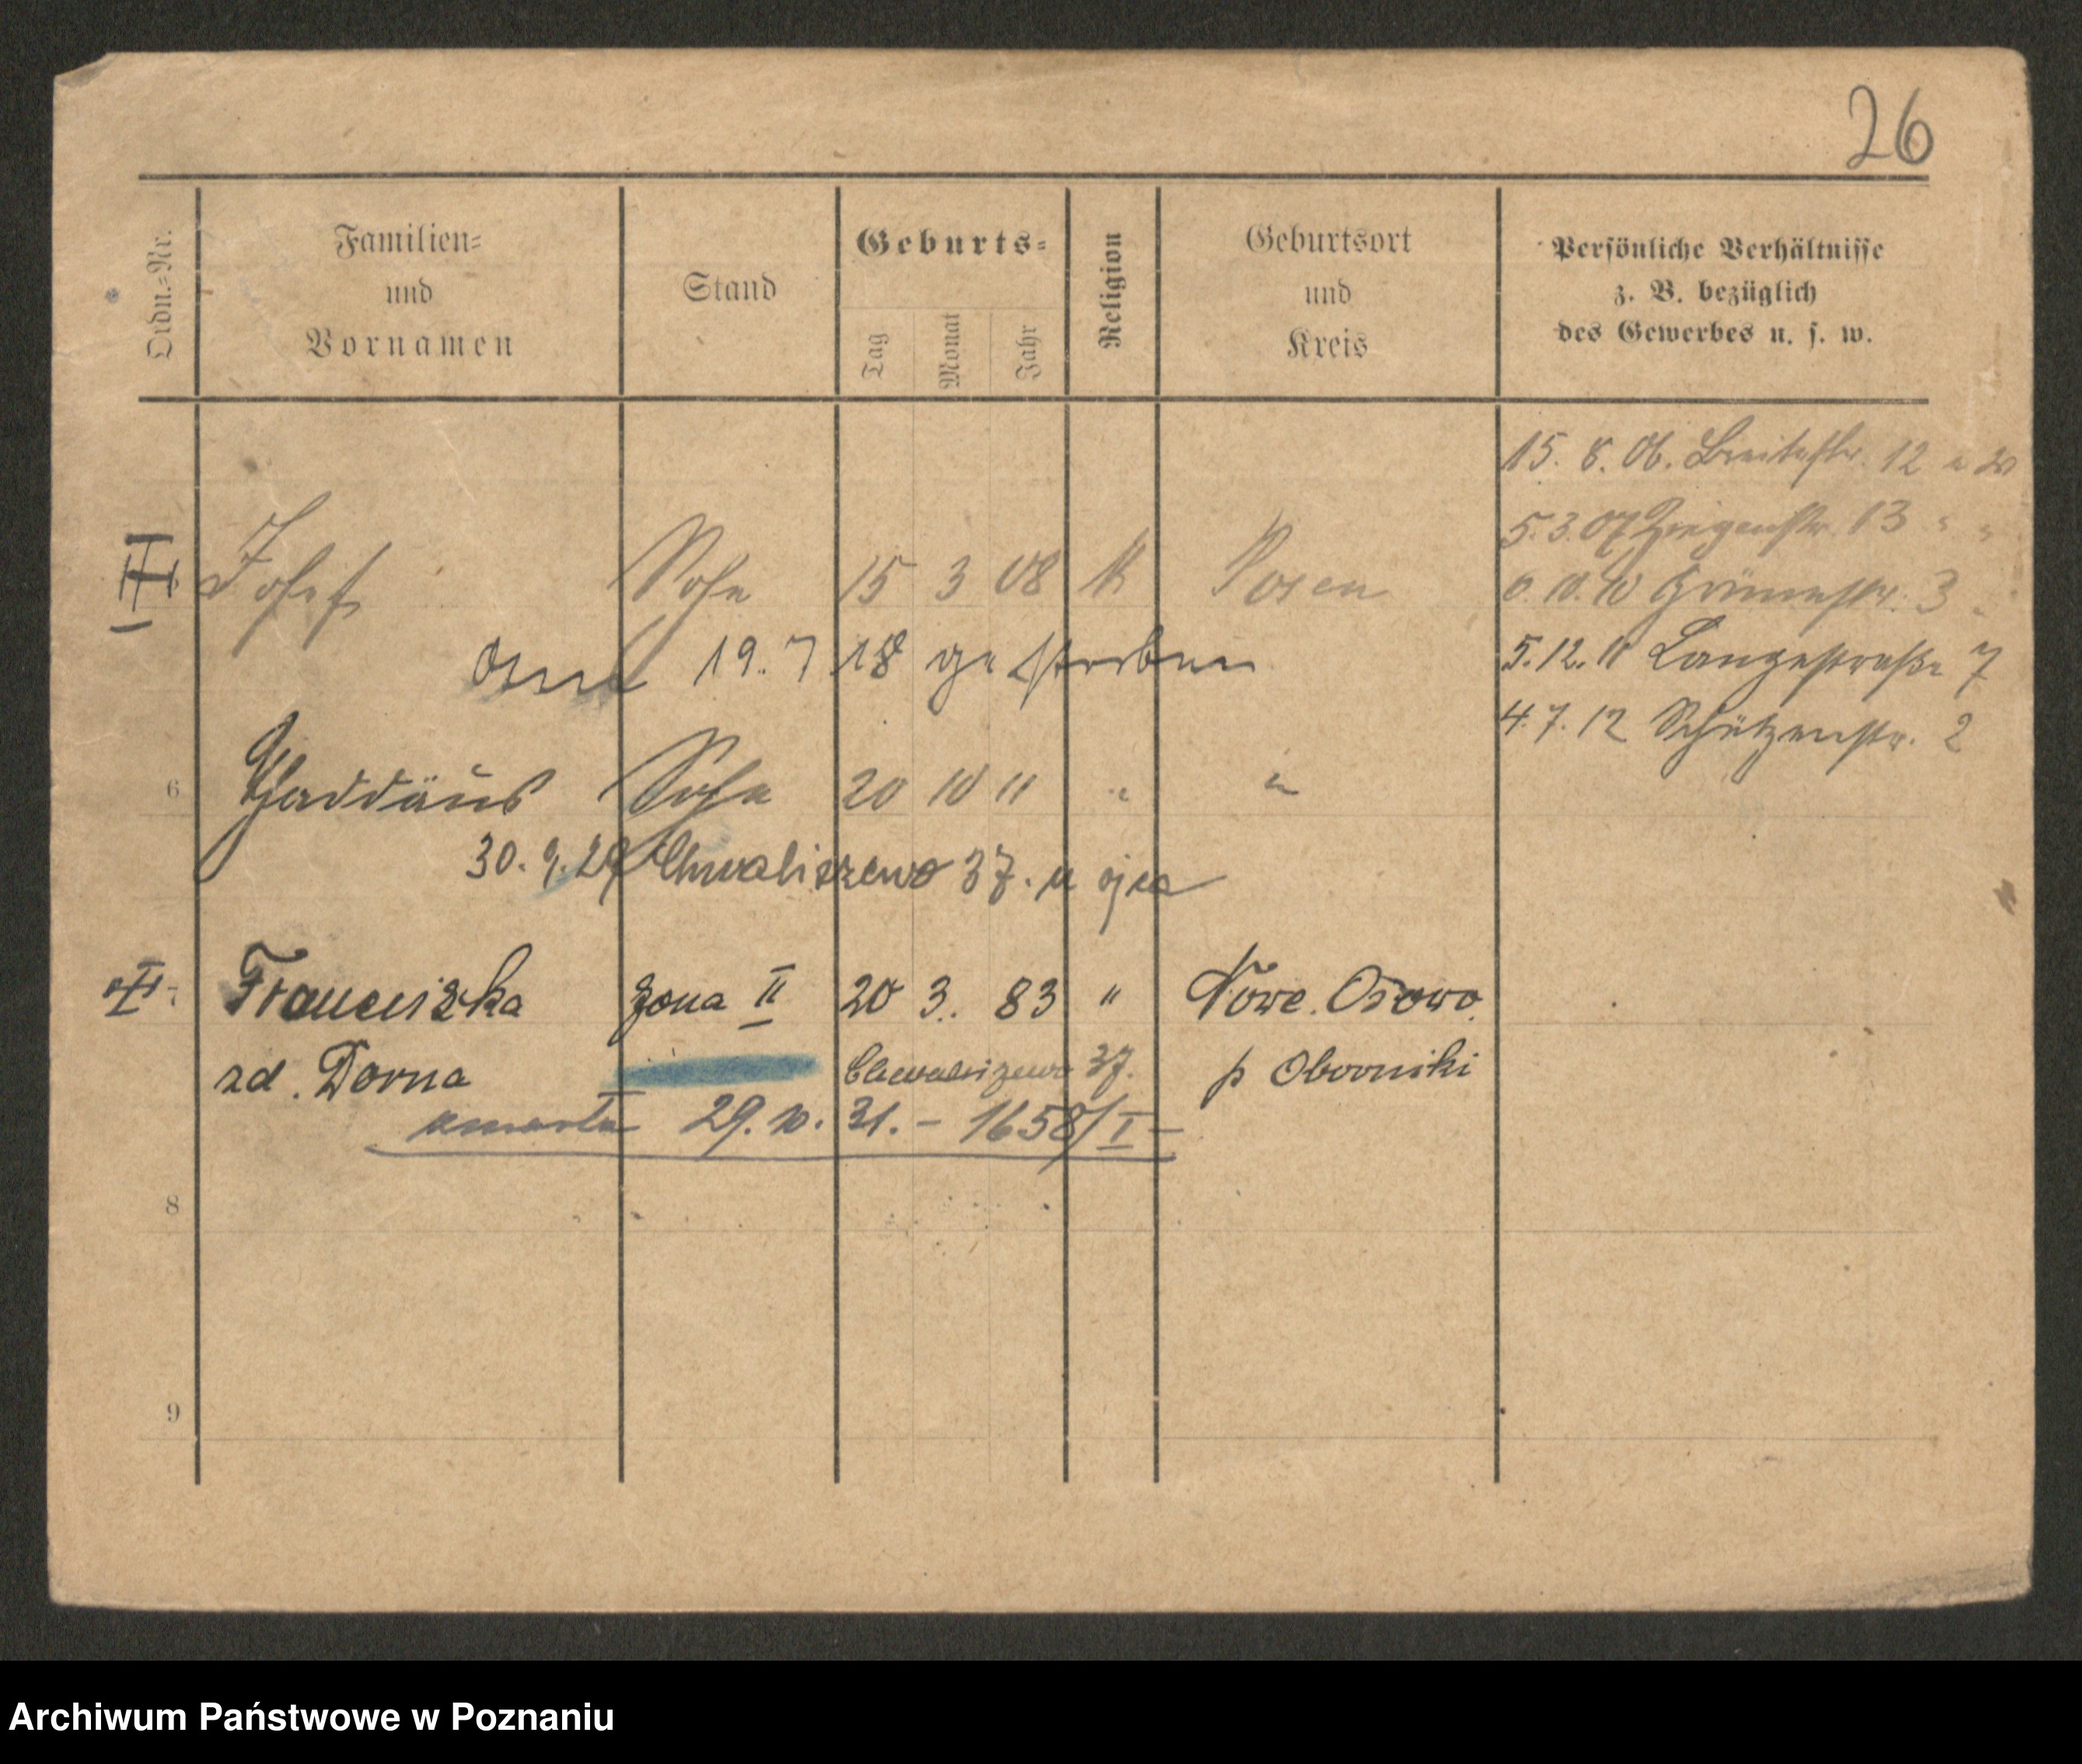 26
Ordn.-Nr.
Familien-
und
Vornamen
Stand
Geburts-
Tag
Monat
Jahr
Religion
Geburtsort
und
Kreis
Persönliche Verhältnisse
z. B. bezüglich
des Gewerbes u. s. w.
15. 6. 06. Breitestr. 12
5. 3. 07 Ziegenstr. 13 " "
III Josef Sohn 15 3 08 K Posen
10. 10 Grünestr. 3
19. 7 18 gestorben
5. 12. 11 Langestraße 7
4. 7. 12 Schützenstr. 2
6 Thaddäus Sohn 20 10 11 " "
30. 9. 29 Chwaliszewo 37. u ojca
II 7 Franciszka żona II 20 3. 83 " Nowe. Osowo.
zd. Dorna Chwaliszewo 37. p Oborniki
umarła 29. 10. 31. - 1658/I -
8
9
Archiwum Państwowe w Poznaniu